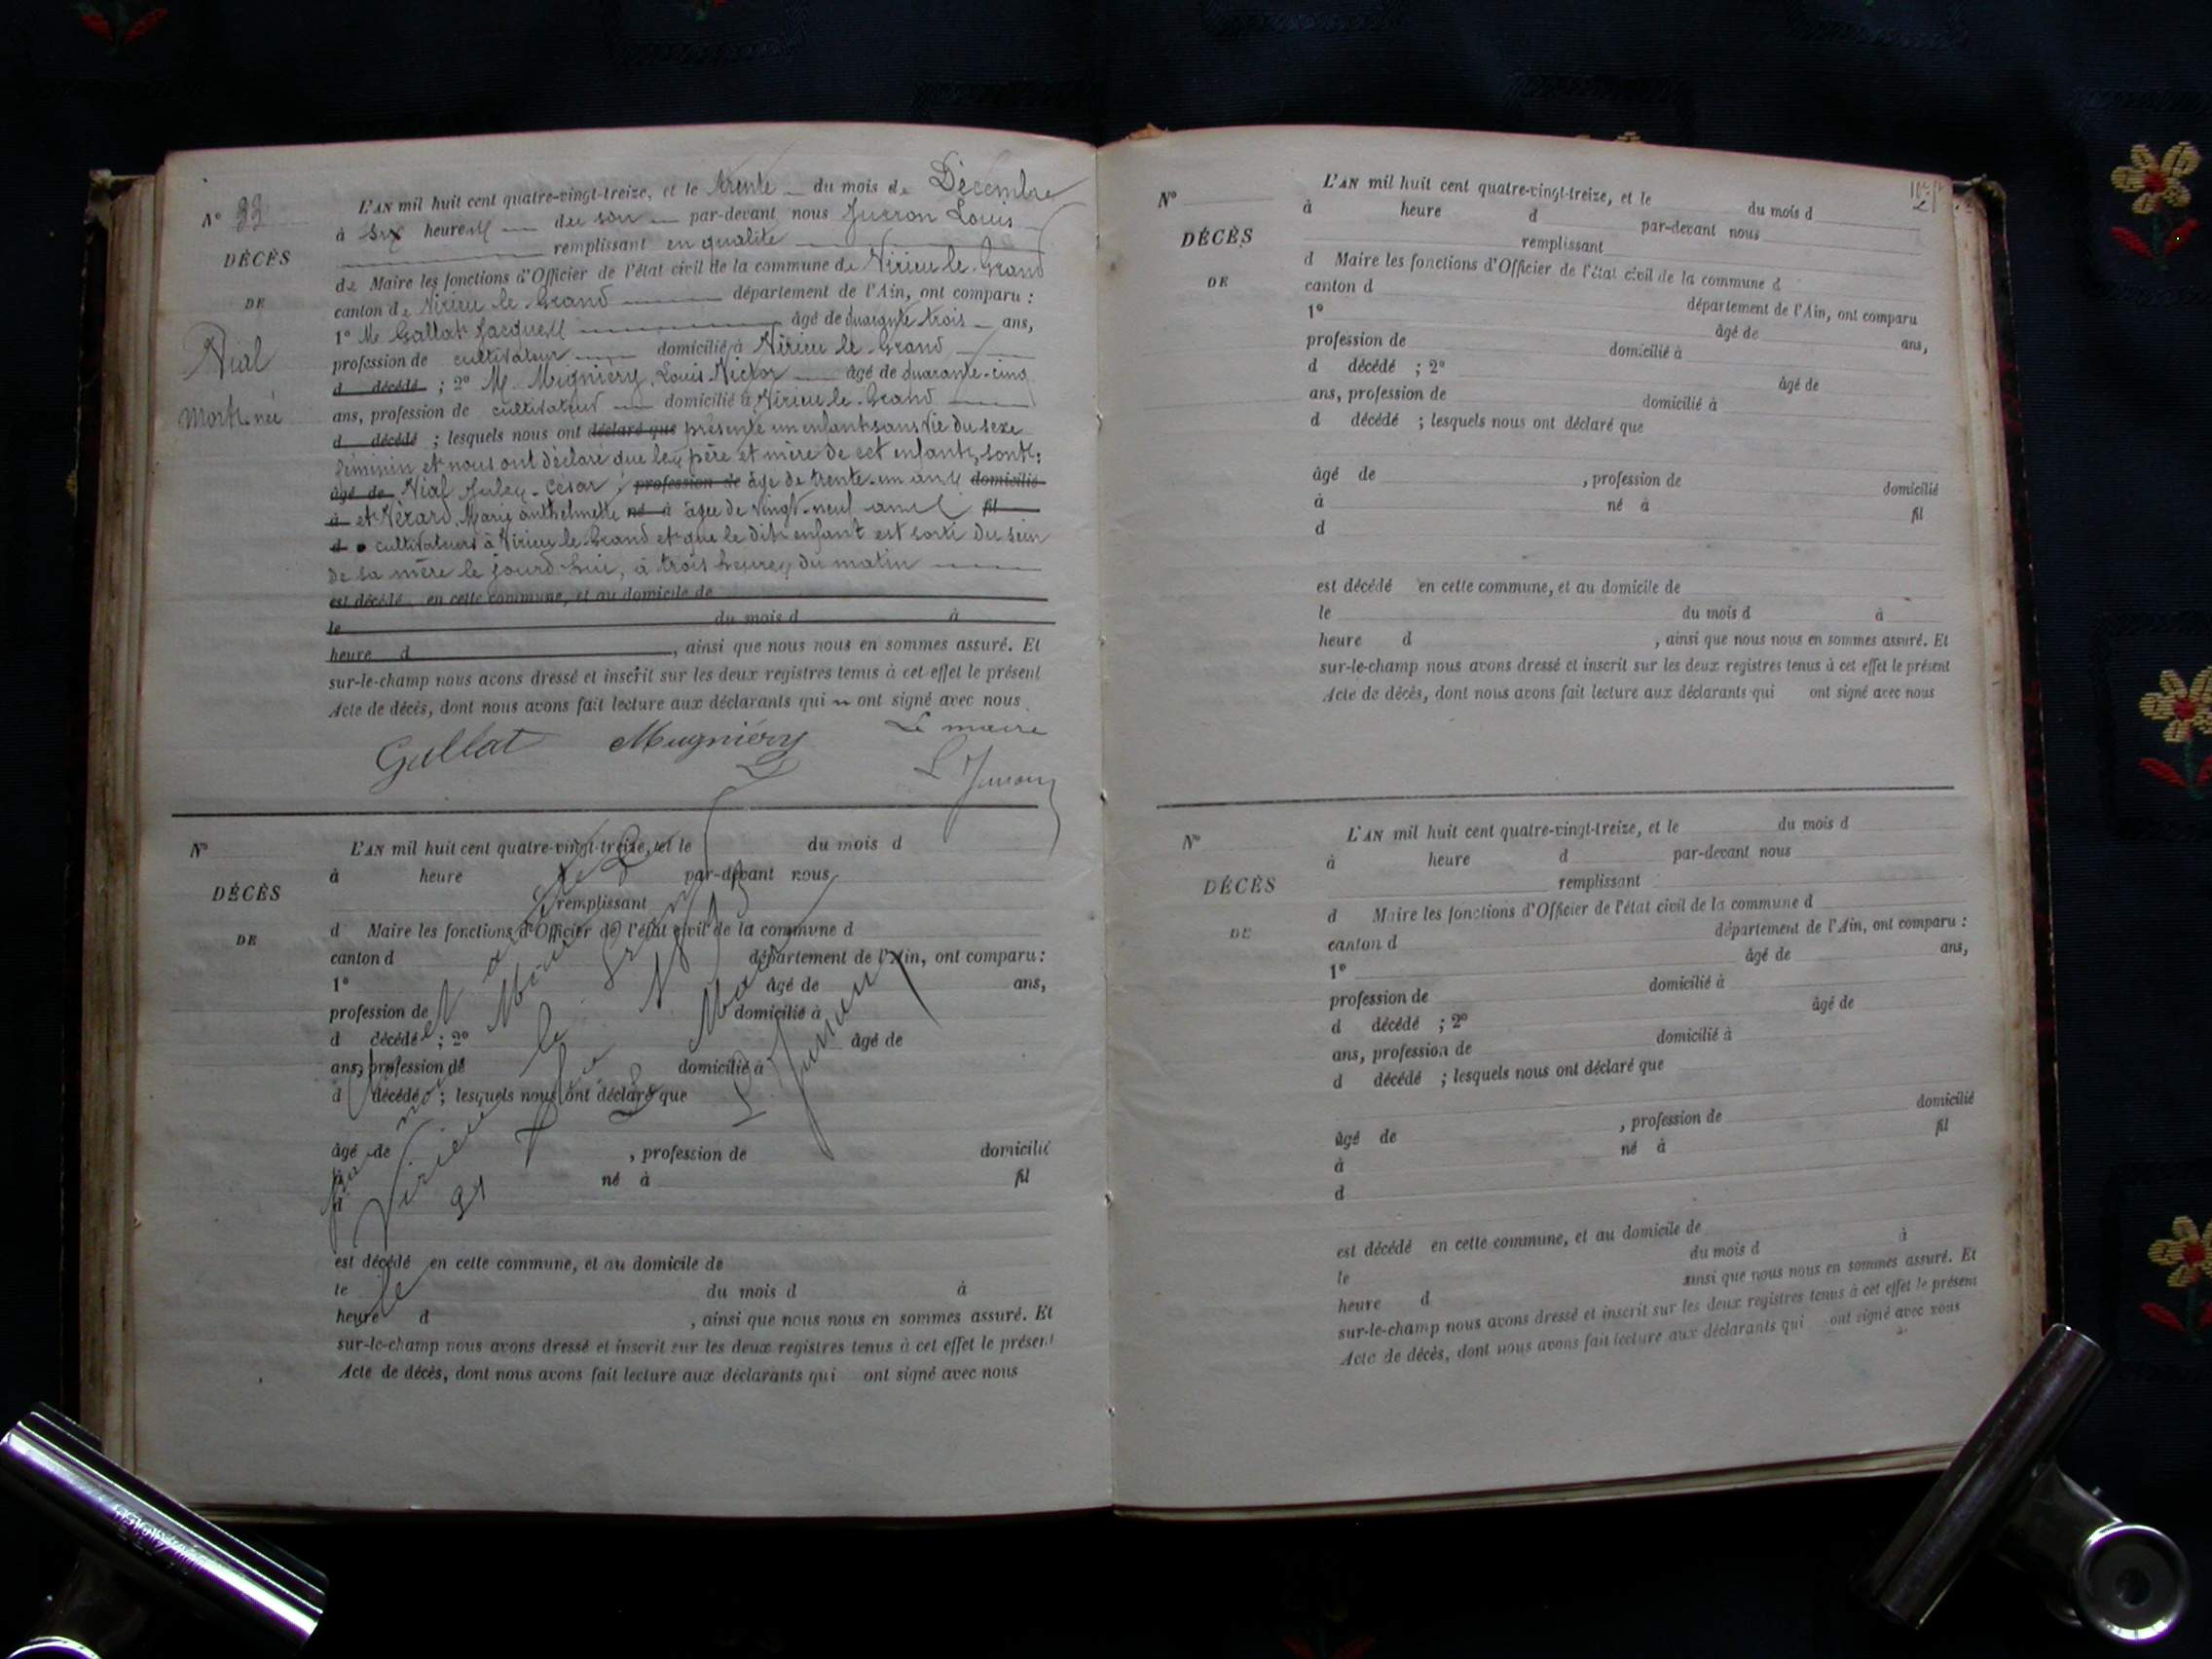 N° 33
DÉCÈS
DE
Vial
Mort-née
L'AN mil huit cent quatre-vingt-treize, et le trente du mois de Décembre
à six heures du soir par-devant nous Juvron Louis
remplissant en qualité
de Maire les fonctions d'Officier de l'état civil de la commune de Virieu le Grand
canton de Virieu le Grand département de l'Ain, ont comparu :
1° M. Gallat Jacques âgé de quarante trois ans,
profession de cultivateur domicilié à Virieu le Grand
d décédé ; 2° M. Mugniery, Louis Victor âgé de quarante-cinq
ans, profession de cultivateur domicilié à Virieu-le-Grand
d décédé ; lesquels nous ont déclaré que présenté un enfant sans vie du sexe
féminin et nous ont déclaré que les père et mère de cet enfant, sont :
âgé de Vial Jules-César, profession de âgé de trente-un ans domicilié
à et Vérard, Marie Anthelmette né à âgée de vingt-neuf ans fil
d cultivateurs à Virieu-le-Grand et que le dit enfant est sorti du sein
de sa mère le jourd'hui, à trois heures du matin
est décédé en cette commune, et au domicile de
le du mois d à
heure d , ainsi que nous nous en sommes assuré. Et
sur-le-champ nous avons dressé et inscrit sur les deux registres tenus à cet effet le présent
Acte de décès, dont nous avons fait lecture aux déclarants qui ont signé avec nous
Gallat Mugniery Le maire
N°
DÉCÈS
DE
L'AN mil huit cent quatre-vingt-treize, et le du mois d
à heure d par-devant nous
remplissant
d Maire les fonctions d'Officier de l'état civil de la commune d
canton d département de l'Ain, ont comparu :
1° âgé de ans,
profession de domicilié à
d décédé ; 2° âgé de
ans, profession de domicilié à
d décédé ; lesquels nous ont déclaré que
âgé de , profession de domicilié
à né à fil
d
est décédé en cette commune, et au domicile de
le du mois d à
heure d , ainsi que nous nous en sommes assuré. Et
sur-le-champ nous avons dressé et inscrit sur les deux registres tenus à cet effet le présent
Acte de décès, dont nous avons fait lecture aux déclarants qui ont signé avec nous
et arrêté
Virieu le Grand
le 31
Le Maire
N°
DÉCÈS
DE
L'AN mil huit cent quatre-vingt-treize, et le du mois d
à heure d par-devant nous
remplissant
d Maire les fonctions d'Officier de l'état civil de la commune d
canton d département de l'Ain, ont comparu
1° âgé de ans,
profession de domicilié à
d décédé ; 2° âgé de
ans, profession de domicilié à
d décédé ; lesquels nous ont déclaré que
âgé de , profession de domicilié
à né à fil
d
est décédé en cette commune, et au domicile de
le du mois d à
heure d , ainsi que nous nous en sommes assuré. Et
sur-le-champ nous avons dressé et inscrit sur les deux registres tenus à cet effet le présent
Acte de décès, dont nous avons fait lecture aux déclarants qui ont signé avec nous
N°
DÉCÈS
DE
L'AN mil huit cent quatre-vingt-treize, et le du mois d
à heure d par-devant nous
remplissant
d Maire les fonctions d'Officier de l'état civil de la commune d
canton d département de l'Ain, ont comparu :
1° âgé de ans,
profession de domicilié à
d décédé ; 2° âgé de
ans, profession de domicilié à
d décédé ; lesquels nous ont déclaré que
âgé de , profession de domicilié
à né à fil
d
est décédé en cette commune, et au domicile de
le du mois d à
heure d ainsi que nous nous en sommes assuré. Et
sur-le-champ nous avons dressé et inscrit sur les deux registres tenus à cet effet le présent
Acte de décès, dont nous avons fait lecture aux déclarants qui ont signé avec nous